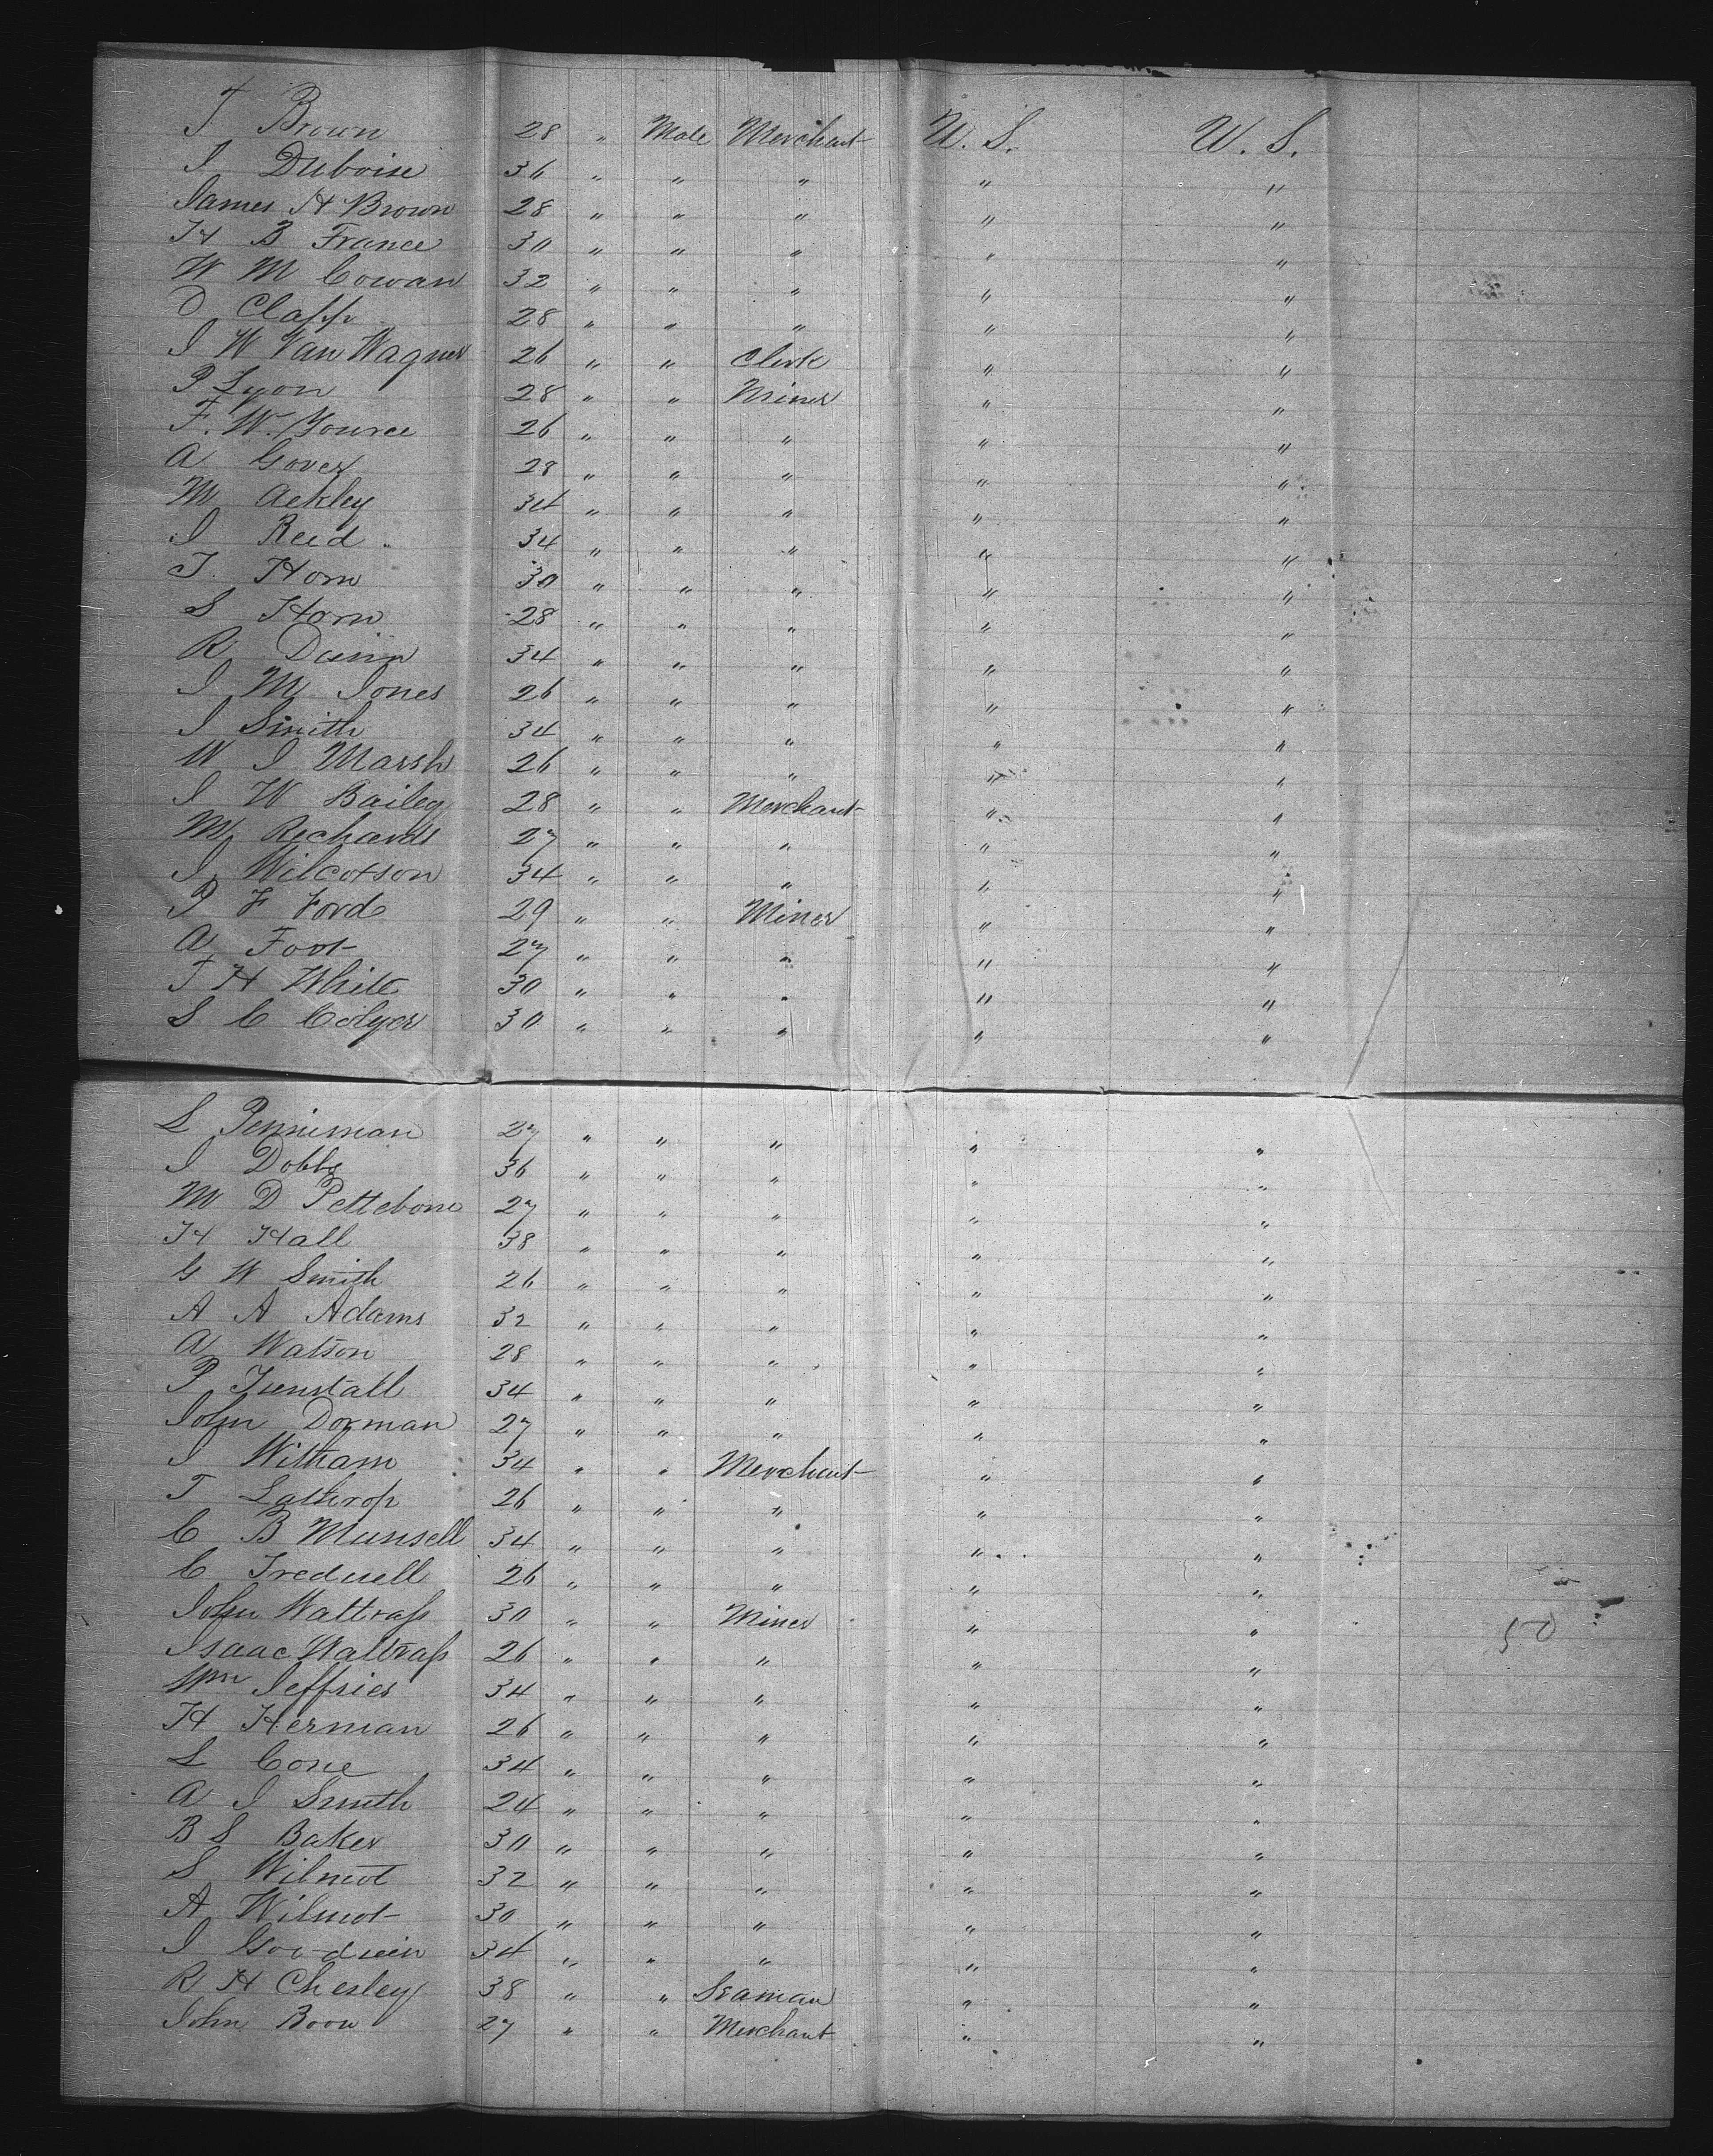 T Brown 28 " Male Merchant U. S. U. S.
J Duboise 36 " " " " "
James H Brown 28 " " " " "
H B France 30 " " " " "
W M Cowan 32 " " " " "
O Clapp 28 " " " " "
J W Van Wagner 26 " " Clerk " "
P Lyon 28 " " Miner " "
F. W. Yource 26 " " " " "
A Gover 28 " " " " "
M Ackley 34 " " " " "
J Reed 34 " " " " "
T Horn 30 " " " " "
S Horn 28 " " " " "
R Dunn 34 " " " " "
J M Jones 26 " " " " "
J Smith 34 " " " " "
W J Marsh 26 " " " " "
J W Bailey 28 " " Merchant " "
M Richards 27 " " " " "
J Wilcoxson 34 " " " " "
P F Ford 29 " " Miner " "
A Foot 27 " " " " "
T H White 30 " " " " "
S C Colyer 30 " " " " "
L Penniman 27 " " " " "
J Dobbs 36 " " " " "
M D Pettebone 27 " " " " "
H Hall 38 " " " " "
G W Smith 26 " " " " "
A A Adams 32 " " " " "
A Watson 28 " " " " "
P Isenstall 34 " " " " "
John Dorman 27 " " " " "
J Witham 34 " " Merchant " "
T Lathrop 26 " " " " "
C B Munsell 34 " " " " "
C Tredwell 26 " " " " "
John Waltrass 30 " " Miner " "
Isaac Waltrass 26 " " " " "
Wm Jeffries 34 " " " " "
H Herman 26 " " " " "
L Cone 34 " " " " "
A J Smith 24 " " " " "
B S Baker 30 " " " " "
S Wilmot 32 " " " " "
A Wilmot 30 " " " " "
J Goodwin 34 " " " " "
R H Chesley 38 " " Seaman " "
John Boow 27 " " Merchant " "